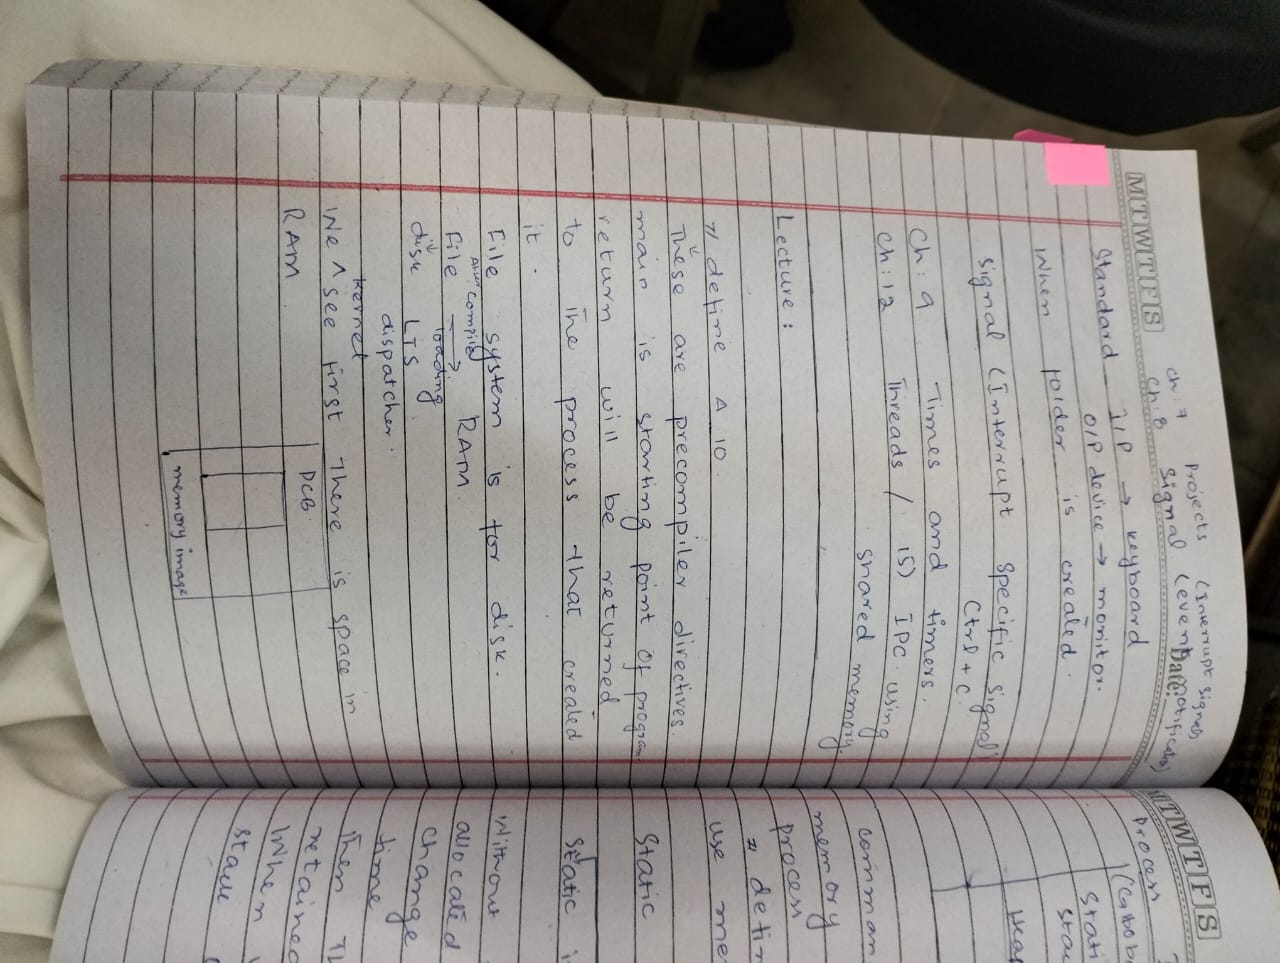 Ch: 7 Projects (Interrupt signals
Ch: 8 Signal (event notification)
MTWTFS
Date:
Standard I/P → keyboard
O/P device → monitor.
When folder is created.
Signal (Interrupt specific signal)
Ctrl + C
Ch: 9 Times and timers.
Ch: 12 Threads / 15) IPC using
shared memory.
Lecture:
# define A 10
↓
These are precompiler directives.
main is starting point of program
return will be returned
to the process that created
it.
File system is for disk.
After compile
File → RAM
↓ loading
disk LTS
dispatcher.
kernel
We ^ see first there is space in
RAM
PCB
memory image
MTWTFS
Process
Stati
Sta
comman
memory
process
# defin
use me
Static
Static i
Without
allocated
change
time
then th
retained
When
stack